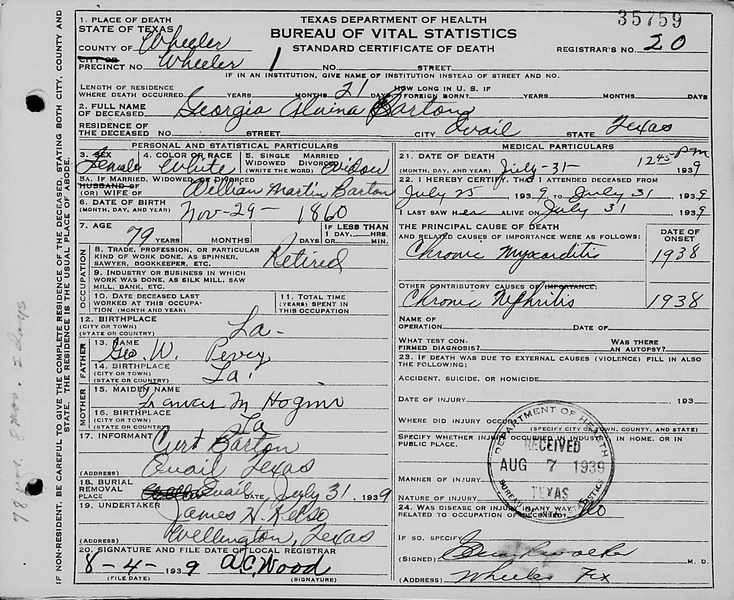 35759
TEXAS DEPARTMENT OF HEALTH
BUREAU OF VITAL STATISTICS
STANDARD CERTIFICATE OF DEATH
REGISTRAR'S NO. 20
1. PLACE OF DEATH
STATE OF TEXAS
COUNTY OF Wheeler
CITY OR
PRECINCT NO. Wheeler 1 NO. STREET
IF IN AN INSTITUTION, GIVE NAME OF INSTITUTION INSTEAD OF STREET AND NO.
LENGTH OF RESIDENCE
WHERE DEATH OCCURRED YEARS MONTHS 21 DAYS HOW LONG IN U. S. IF FOREIGN BORN? YEARS MONTHS DAYS
2. FULL NAME
OF DECEASED Georgia Alaina Barton
RESIDENCE OF
THE DECEASED NO. STREET CITY Quail STATE Texas
PERSONAL AND STATISTICAL PARTICULARS
3. SEX Female 4. COLOR OR RACE White 5. SINGLE MARRIED WIDOWED DIVORCED (WRITE THE WORD) Widow
5A. IF MARRIED, WIDOWED, OR DIVORCED
HUSBAND OF
(OR) WIFE OF William Martin Barton
6. DATE OF BIRTH
(MONTH, DAY, AND YEAR) Nov-29- 1860
7. AGE 79 YEARS MONTHS DAYS IF LESS THAN 1 DAY, HRS. OR MIN.
OCCUPATION
8. TRADE, PROFESSION, OR PARTICULAR
KIND OF WORK DONE, AS SPINNER,
SAWYER, BOOKKEEPER, ETC. Retired
9. INDUSTRY OR BUSINESS IN WHICH
WORK WAS DONE, AS SILK MILL, SAW
MILL, BANK, ETC.
10. DATE DECEASED LAST
WORKED AT THIS OCCUPATION (MONTH AND YEAR)
11. TOTAL TIME
(YEARS) SPENT IN
THIS OCCUPATION
12. BIRTHPLACE
(CITY OR TOWN)
(STATE OR COUNTRY) La-
FATHER
13. NAME Geo. W.
14. BIRTHPLACE
(CITY OR TOWN)
(STATE OR COUNTRY) La.
MOTHER
15. MAIDEN NAME
Frances M
16. BIRTHPLACE
(CITY OR TOWN)
(STATE OR COUNTRY) La
17. INFORMANT Curt Barton
(ADDRESS) Quail Texas
18. BURIAL
REMOVAL
PLACE Quail DATE July 31, 1939
19. UNDERTAKER James H. Kelso
(ADDRESS) Wellington, Texas
20. SIGNATURE AND FILE DATE OF LOCAL REGISTRAR
8-4- 1939 A.C. Wood
(FILE DATE) (SIGNATURE)
MEDICAL PARTICULARS
21. DATE OF DEATH 12 45 PM
(MONTH, DAY, AND YEAR) July-31- 1939
22. I HEREBY CERTIFY, THAT I ATTENDED DECEASED FROM
July 25 1939 TO July 31 1939
I LAST SAW Her ALIVE ON July 31 1939
THE PRINCIPAL CAUSE OF DEATH
AND RELATED CAUSES OF IMPORTANCE WERE AS FOLLOWS:
DATE OF ONSET
Chronic Myocarditis 1938
OTHER CONTRIBUTORY CAUSES OF IMPORTANCE:
Chronic Nephritis 1938
NAME OF
OPERATION DATE OF
WHAT TEST CONFIRMED DIAGNOSIS? WAS THERE AN AUTOPSY?
23. IF DEATH WAS DUE TO EXTERNAL CAUSES (VIOLENCE) FILL IN ALSO
THE FOLLOWING:
ACCIDENT, SUICIDE, OR HOMICIDE
DATE OF INJURY 193
WHERE DID INJURY OCCUR
(SPECIFY CITY OR TOWN, COUNTY, AND STATE)
SPECIFY WHETHER INJURY OCCURRED IN INDUSTRY, IN HOME, OR IN
PUBLIC PLACE.
MANNER OF INJURY
NATURE OF INJURY
24. WAS DISEASE OR INJURY IN ANY WAY
RELATED TO OCCUPATION OF DECEASED? No
IF SO, SPECIFY
(SIGNED) M. D.
(ADDRESS) Wheeler Tex
DEPARTMENT OF HEALTH
RECEIVED
AUG 7 1939
TEXAS
IF NON-RESIDENT, BE CAREFUL TO GIVE THE COMPLETE RESIDENCE OF THE DECEASED-STATING BOTH CITY, COUNTY AND
STATE. THE RESIDENCE IS THE USUAL PLACE OF ABODE.
78 yrs. 8 mos. 2 days